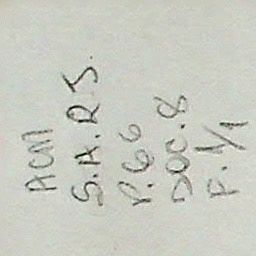 ACM
S.H.R.J.
P.66
DOC.8
P.1/1